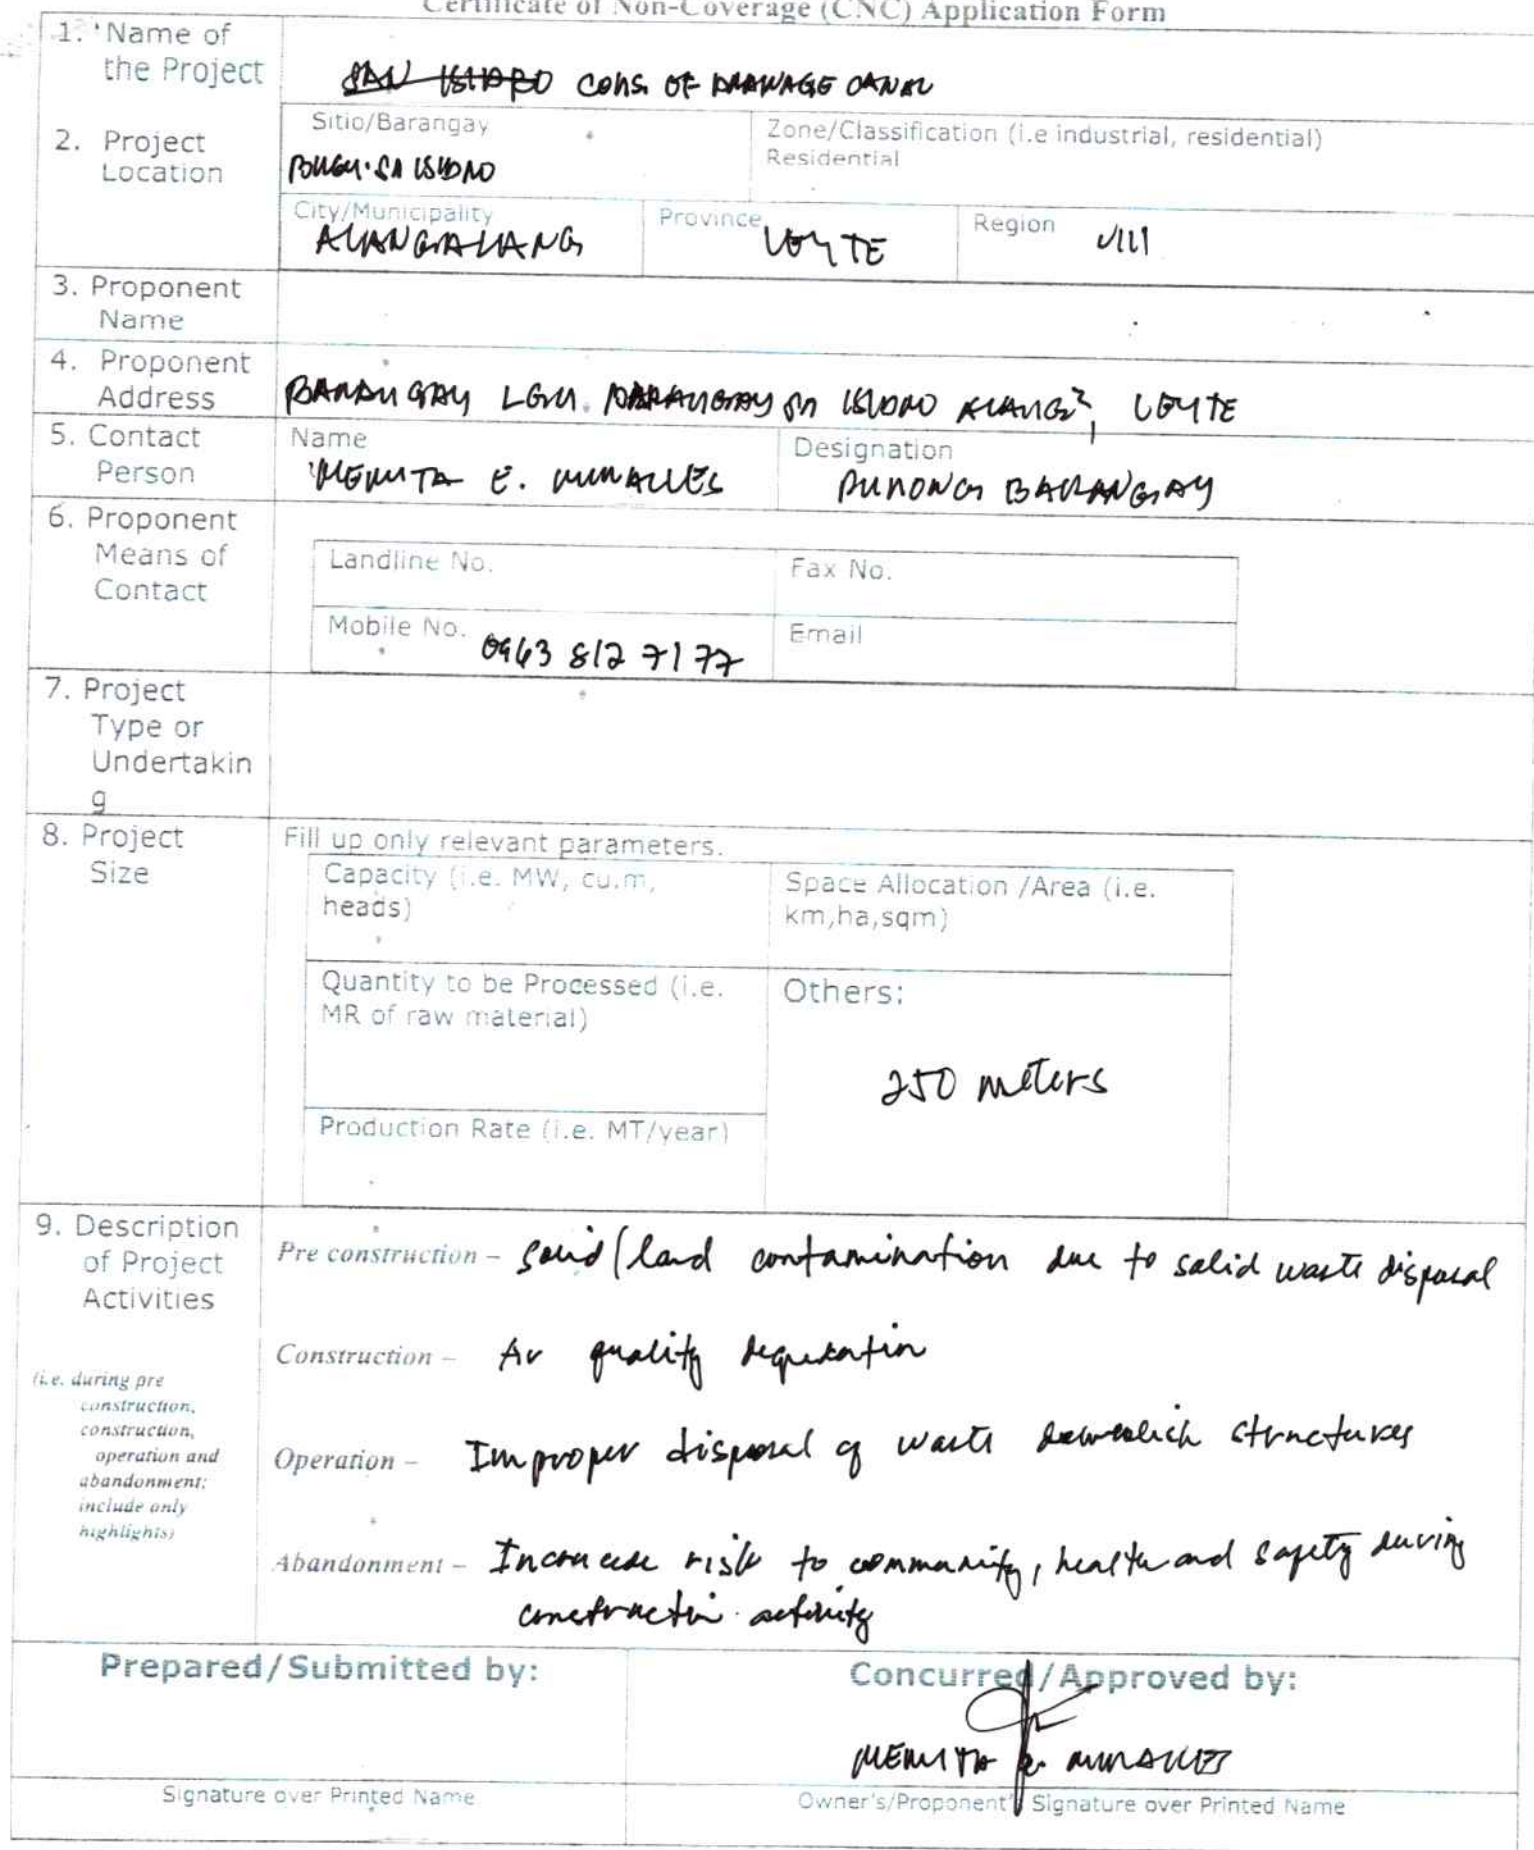 Certificate of Non-Coverage (CNC) Application Form
1. Name of
the Project
SAN ISIDRO CONS. OF DRAINAGE CANAL
2. Project
Location
Sitio/Barangay
BRGY. SN ISIDRO
Zone/Classification (i.e industrial, residential)
Residential
City/Municipality
ALANGALANG
Province
LEYTE
Region
VIII
3. Proponent
Name
4. Proponent
Address
BARANGAY LGU. BARANGAY SN ISIDRO ALANG2, LEYTE
5. Contact
Person
Name
E.
Designation
PUNONG BARANGAY
6. Proponent
Means of
Contact
Landline No.
Fax No.
Mobile No.
0963 812 7177
Email
7. Project
Type or
Undertakin
g
8. Project
Size
Fill up only relevant parameters.
Capacity (i.e. MW, cu.m,
heads)
Space Allocation /Area (i.e.
km,ha,sqm)
Quantity to be Processed (i.e.
MR of raw material)
Others:
250 meters
Production Rate (i.e. MT/year)
9. Description
of Project
Activities
(i.e. during pre
construction,
construction,
operation and
abandonment;
include only
highlights)
Pre construction – Solid/land contamination due to solid waste disposal
Construction – Air quality degradation
Operation – Improper disposal of waste structures
Abandonment – Increase risk to community, health and safety during
construction activity
Prepared/Submitted by:
Concurred/Approved by:
Signature over Printed Name
Owner's/Proponent' Signature over Printed Name